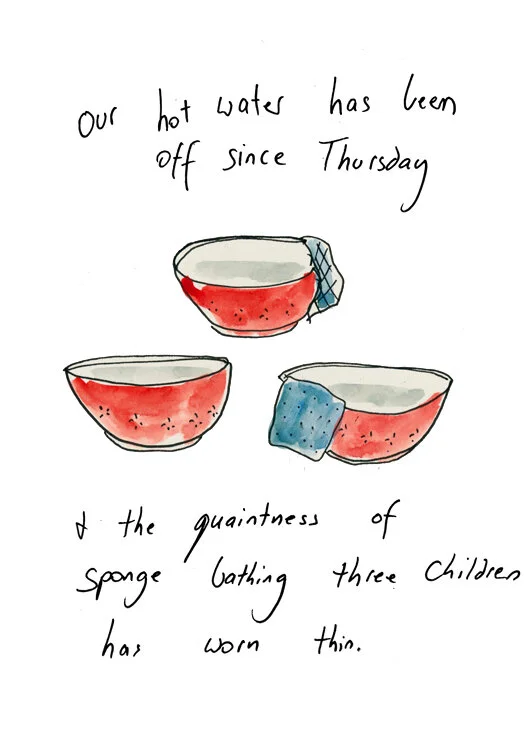 Our hot water has been
off since Thursday
& the quaintness of
sponge bathing three children
has worn thin.